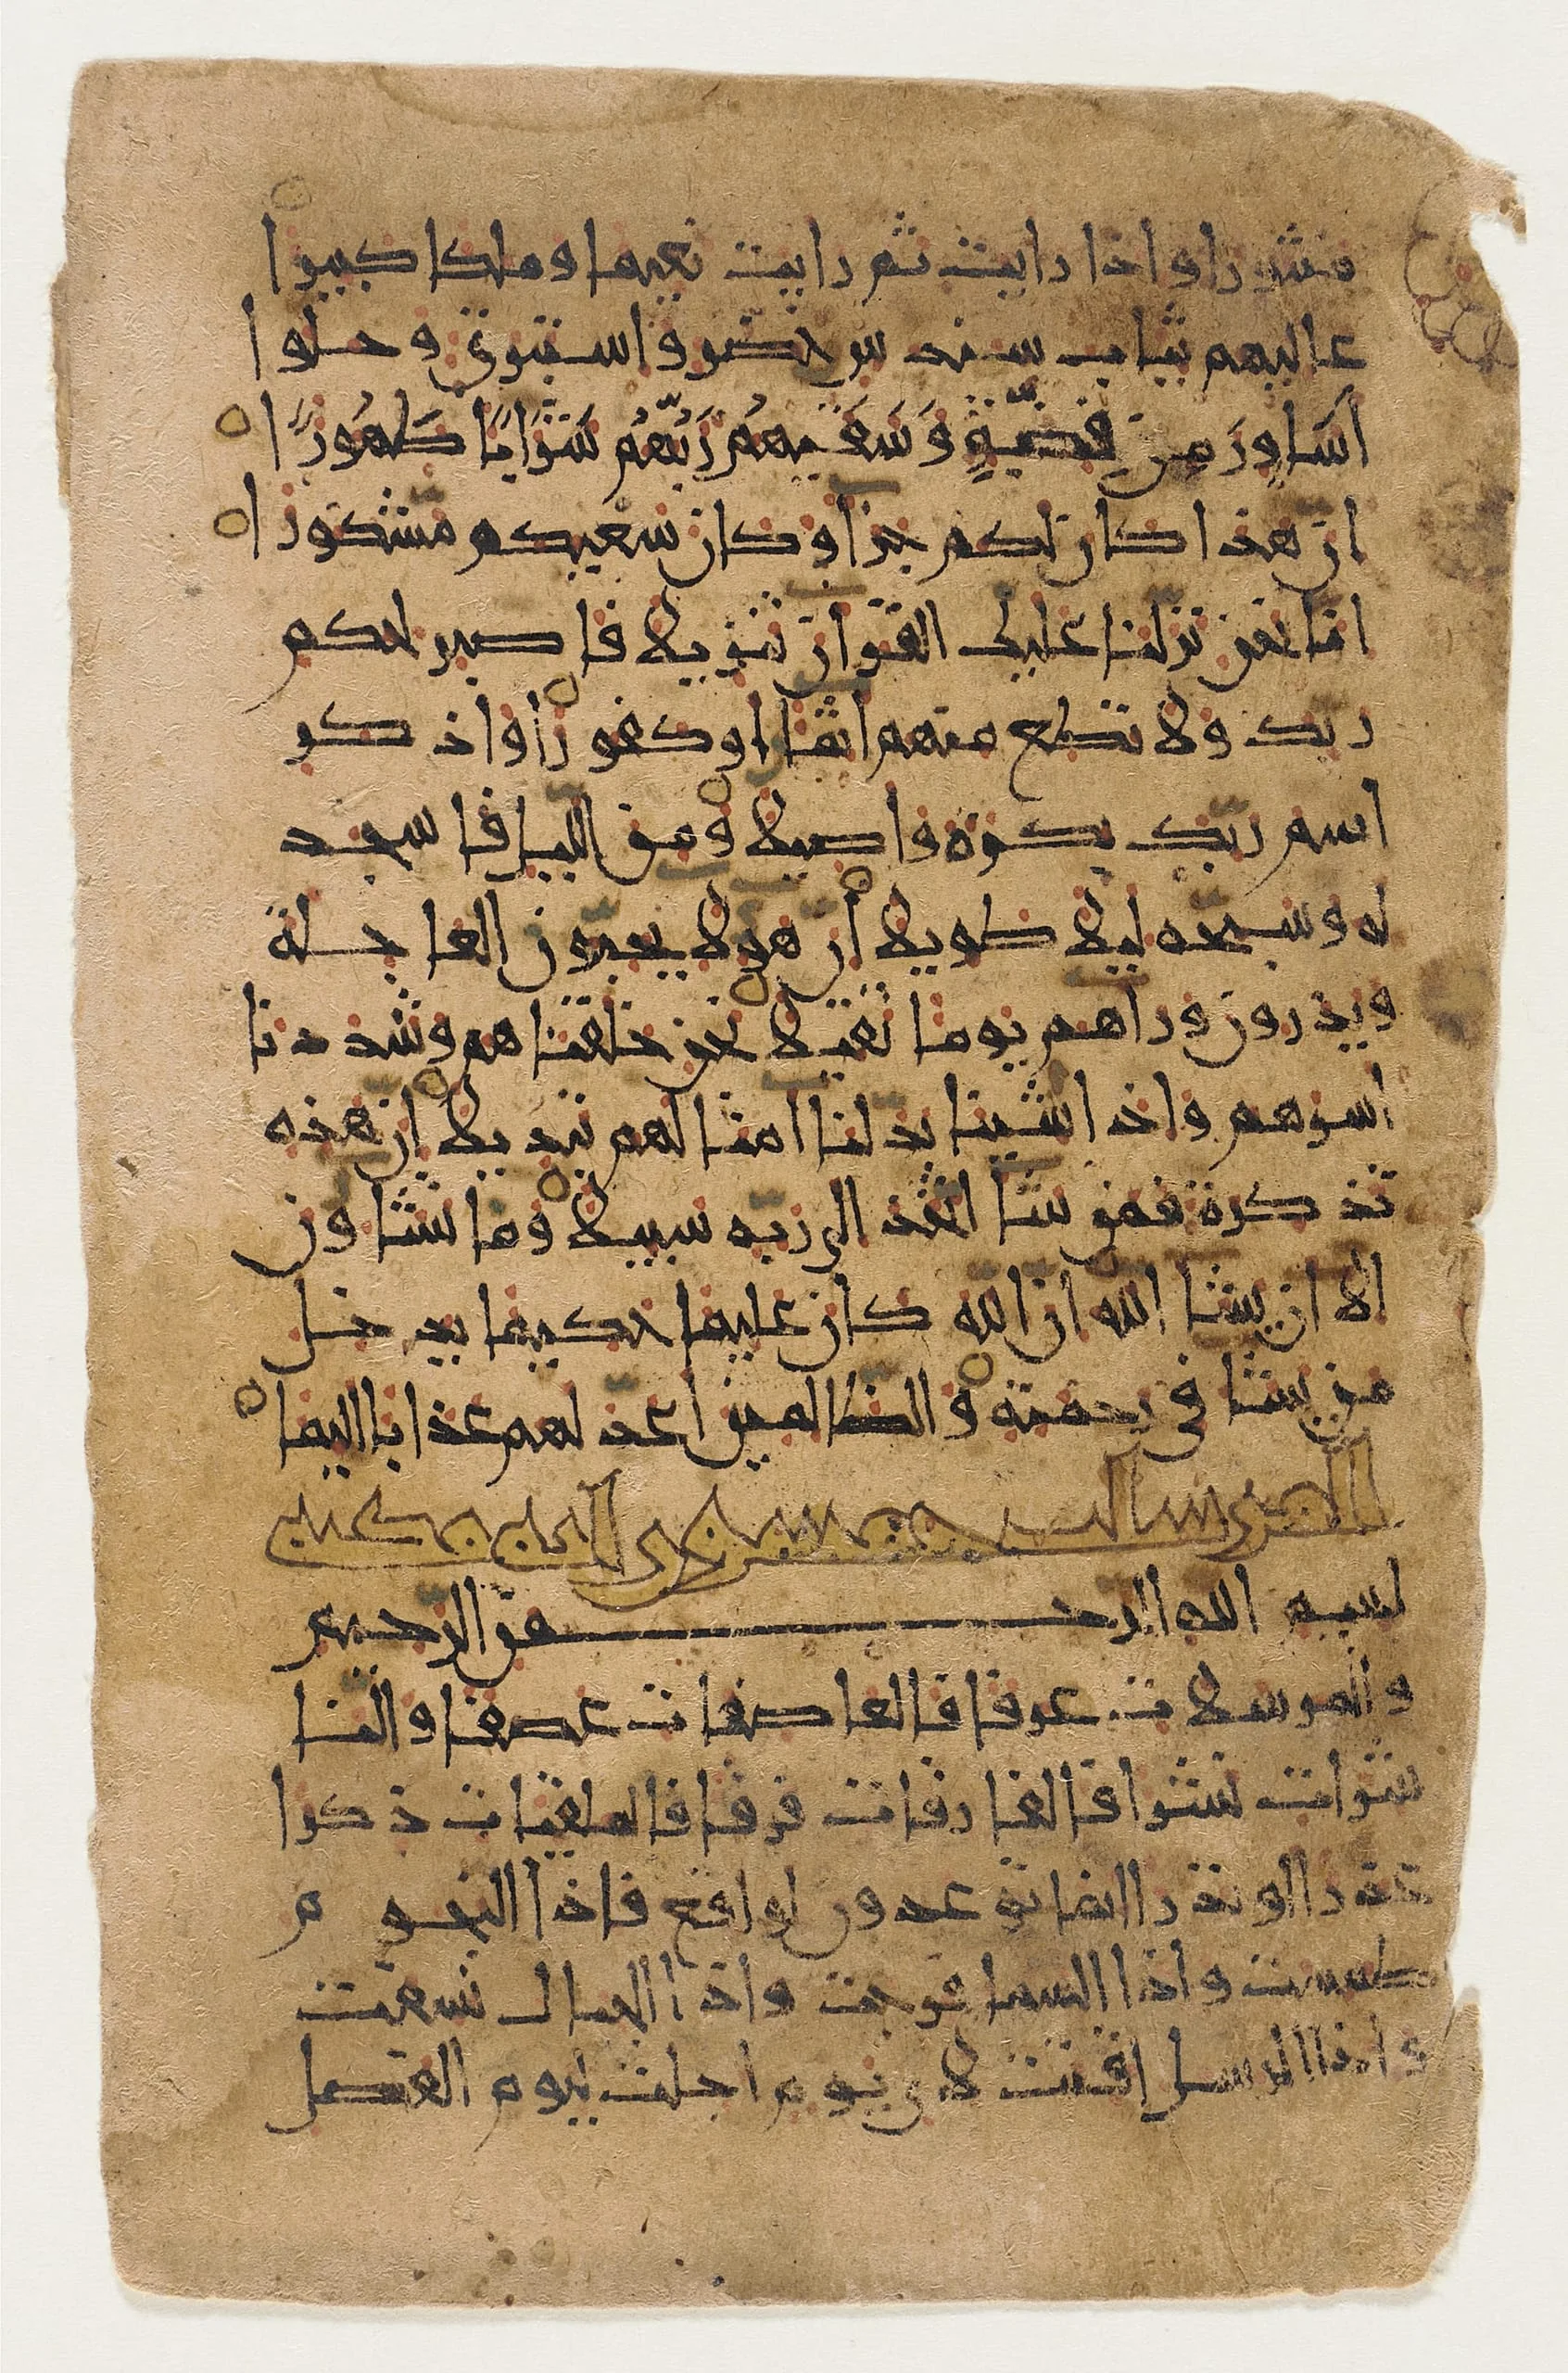 منثورا واذا رايت ثم رايت نعيما وملكا كبيرا
عاليهم ثياب سندس خضر واستبرق وحلوا
أَسَاوِرَ مِن فِضَّةٍ وَسَقَيهُم رَبُّهُم شَرَابًا طَهُورًا
ان هذا كان لكم جزا وكان سعيكم مشكورا
انا نحن نزلنا عليك القران تنزيلا فاصبر لحكم
ربك ولا تطع منهم اثما او كفورا واذكر
اسم ربك بكرة واصيلا ومن الليل فاسجد
له وسبحه ليلا طويلا ان هولا يحبون العاجلة
ويذرون وراهم يوما ثقيلا نحن خلقناهم وشددنا
اسرهم واذا شينا بدلنا امثالهم تبديلا ان هذه
تذكرة فمن شا اتخذ الى ربه سبيلا وما تشاون
الا ان يشا الله ان الله كان عليما حكيما يدخل
من يشا في رحمته والظالمين اعد لهم عذابا اليما
المرسالت خمسون اية مكية
بسم الله الرحمن الرحيم
والمرسلات عرفا فالعاصفات عصفا والنا
شرات نشرا فالفارقات فرقا فالملقيات ذكرا
عذرا او نذرا انما توعدون لواقع فاذا النجوم
طمست واذا السما فرجت واذا الجبال نسفت
واذا الرسل اقتت لاى يوم اجلت ليوم الفصل